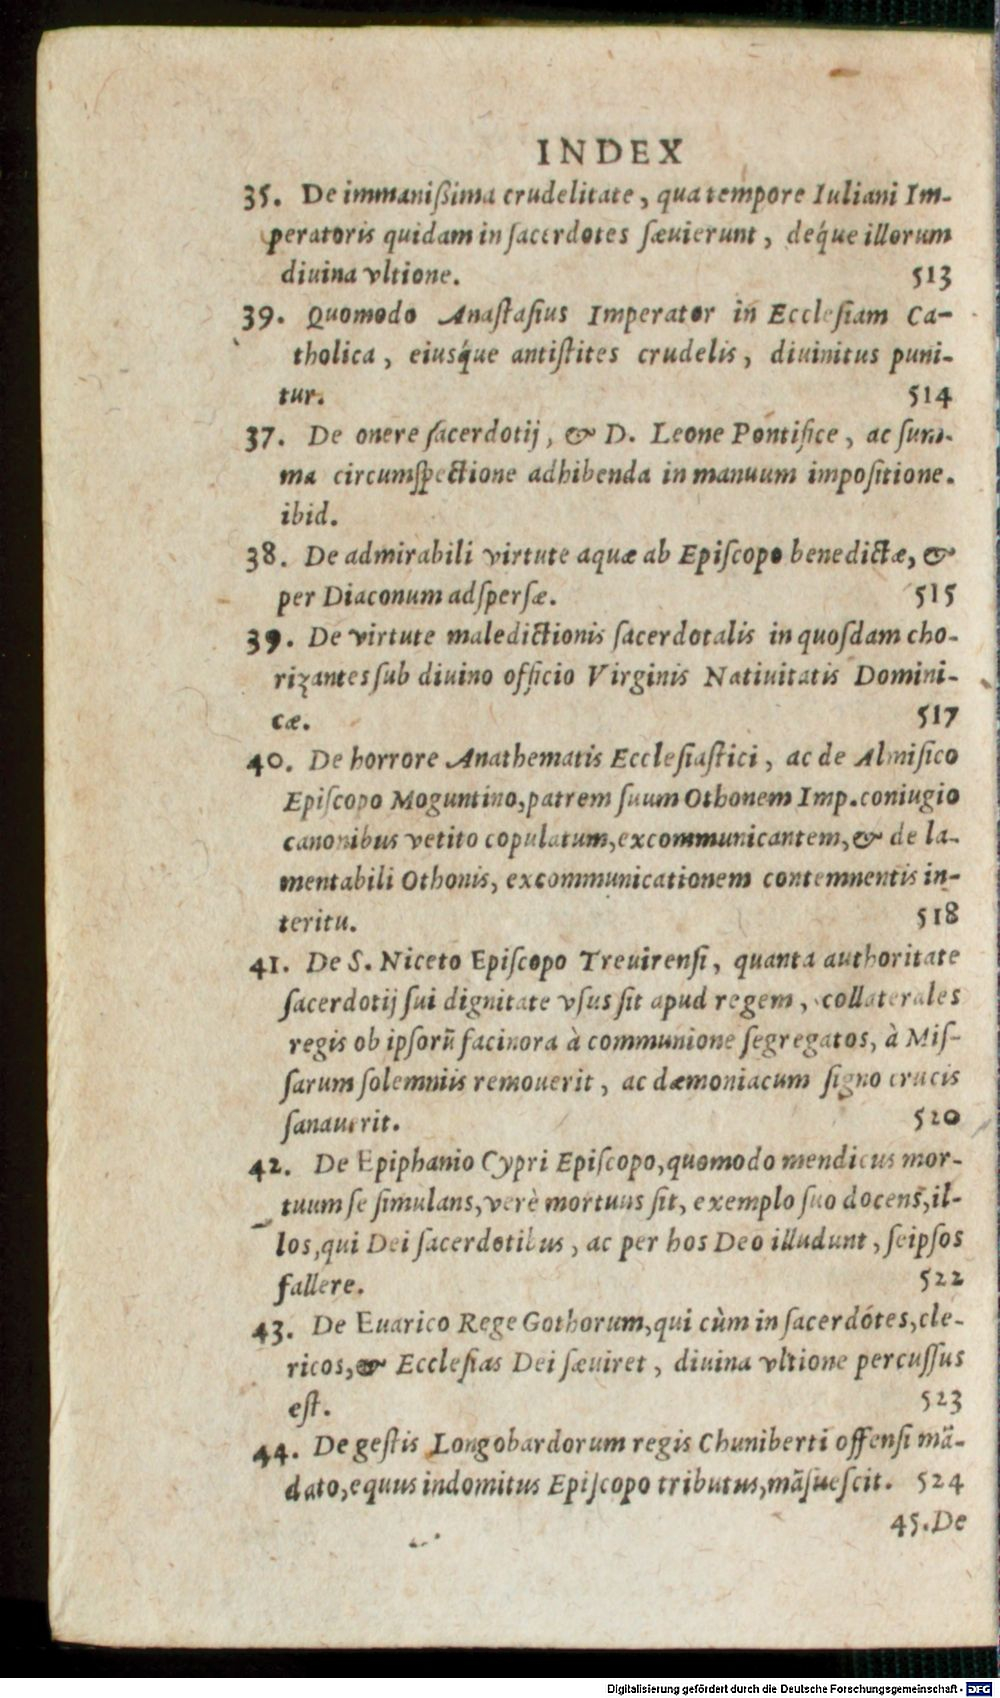 INDEX
35. De immanißima crudelitate, qua tempore Iuliani Im-
peratoris quidam in sacerdotes sæuierunt, deq́ue illorum
diuina vltione. 513
39. Quomodo Anastasius Imperator in Ecclesiam Ca-
tholica, eiusq́ue antistites crudelis, diuinitus puni-
tur. 514
37. De onere sacerdotij, & D. Leone Pontifice, ac sum-
ma circumspectione adhibenda in manuum impositione.
ibid.
38. De admirabili virtute aquæ ab Episcopo benedictæ, &
per Diaconum adspersæ. 515
39. De virtute maledictionis sacerdotalis in quosdam cho-
rizantes sub diuino officio Virginis Natiuitatis Domini-
cæ. 517
40. De horrore Anathematis Ecclesiastici, ac de Almifico
Episcopo Moguntino, patrem suum Othonem Imp. coniugio
canonibus vetito copulatum, excommunicantem, & de la-
mentabili Othonis, excommunicationem contemnentis in-
teritu. 518
41. De S. Niceto Episcopo Treuirensi, quanta authoritate
sacerdotij sui dignitate vsus sit apud regem, collaterales
regis ob ipsorũ facinora à communione segregatos, à Mis-
sarum solemniis remouerit, ac dæmoniacum signo crucis
sanauerit. 520
42. De Epiphanio Cypri Episcopo, quomodo mendicus mor-
tuum se simulans, verè mortuus sit, exemplo suo docens, il-
los, qui Dei sacerdotibus, ac per hos Deo illudunt, seipsos
fallere. 522
43. De Euarico Rege Gothorum, qui cùm in sacerdótes, cle-
ricos, & Ecclesias Dei sæuiret, diuina vltione percussus
est. 523
44. De gestis Longobardorum regis Chuniberti offensi mã-
dato, equus indomitus Episcopo tributus, mãsuescit. 524
45. De
Digitalisierung gefördert durch die Deutsche Forschungsgemeinschaft - DFG